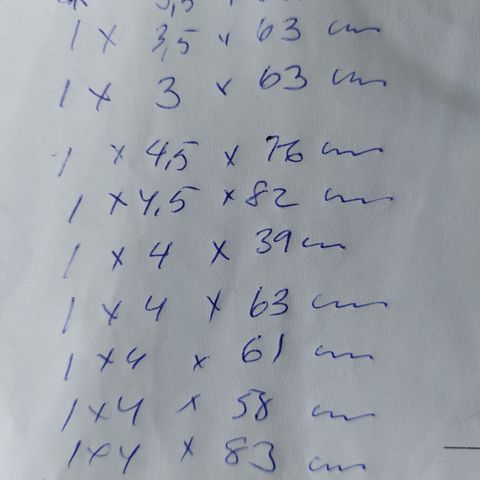 1 x 3,5 x 63 cm
1 x 3 x 63 cm
1 x 4,5 x 76 cm
1 x 4,5 x 82 cm
1 x 4 x 39 cm
1 x 4 x 63 cm
1 x 4 x 61 cm
1 x 4 x 58 cm
1 x 4 x 83 cm